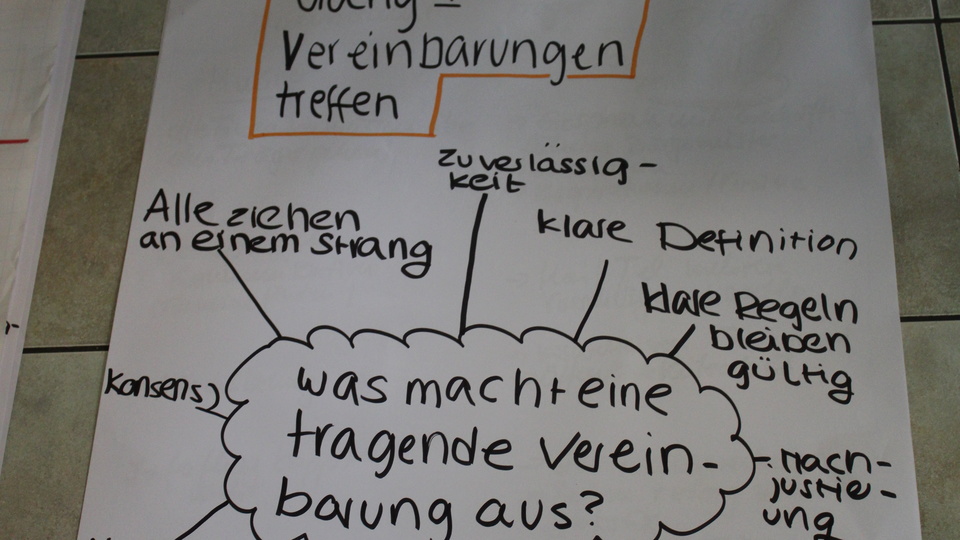 Vereinbarungen
treffen
Zuverlässig-
keit
Alle ziehen
an einem Strang
klare Definition
klare Regeln
bleiben
gültig
Konsens
was macht eine
tragende Verein-
barung aus?
Nach-
justie-
ung